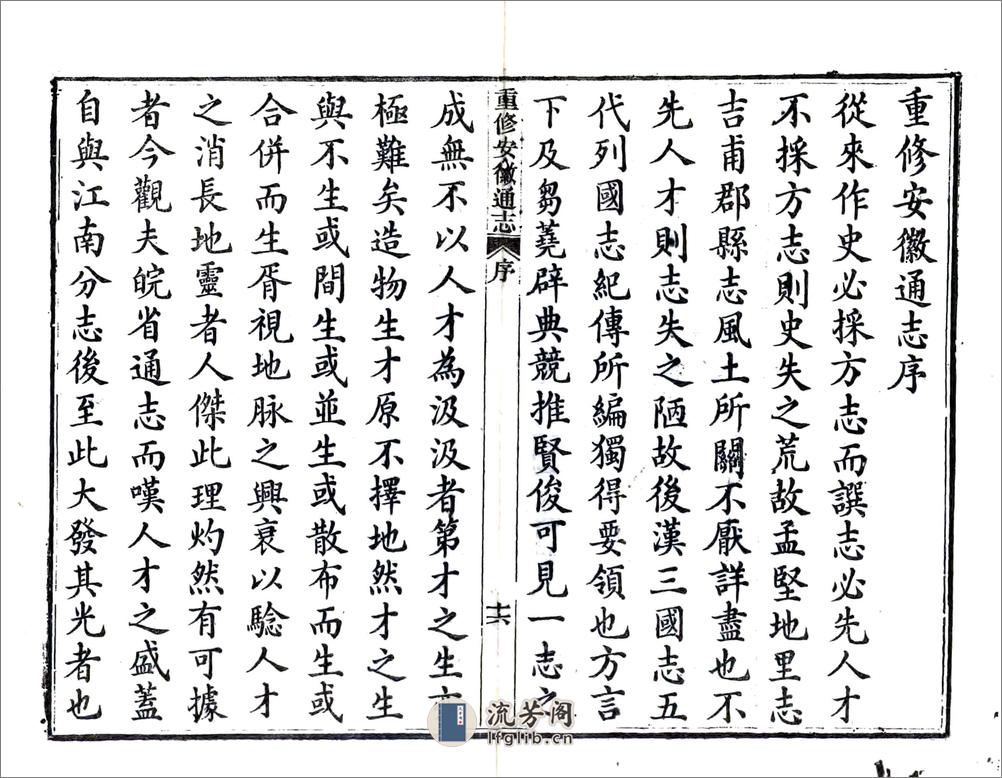 重修安徽通志序
從來作史必採方志而譔志必先人才
不採方志則史失之荒故孟堅地里志
吉甫郡縣志風土所關不厭詳盡也不
先人才則志失之陋故後漢三國志五
代列國志紀傳所編獨得要領也方言
下及芻蕘辟典競推賢俊可見一志之
重修安徽通志
序
十六
成無不以人才為汲汲者第才之生
極難矣造物生才原不擇地然才之生
與不生或間生或並生或散布而生或
合併而生胥視地脉之興衰以驗人才
之消長地靈者人傑此理灼然有可據
者今觀夫皖省通志而嘆人才之盛蓋
自與江南分志後至此大發其光者也
流芳阁
lfglib.cn